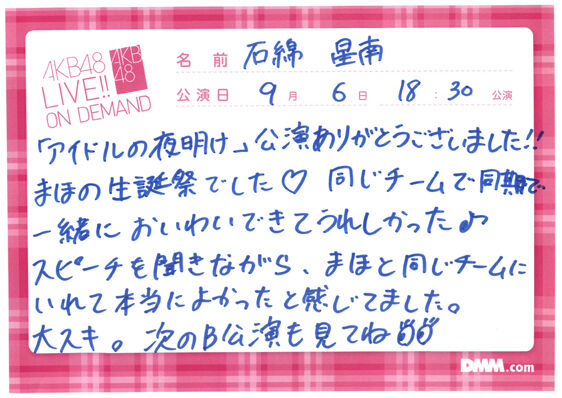 AKB48
LIVE!!
ON DEMAND
AKB
48
名前 石綿 星南
公演日 9月 6日 18:30 公演
「アイドルの夜明け」公演ありがとうございました!!
まほの生誕祭でした♡ 同じチームで同期で
一緒においわいできてうれしかった♪
スピーチを聞きながら、まほと同じチームに
いれて本当によかったと感じてました。
大スキ。次のB公演も見てね
DMM.com